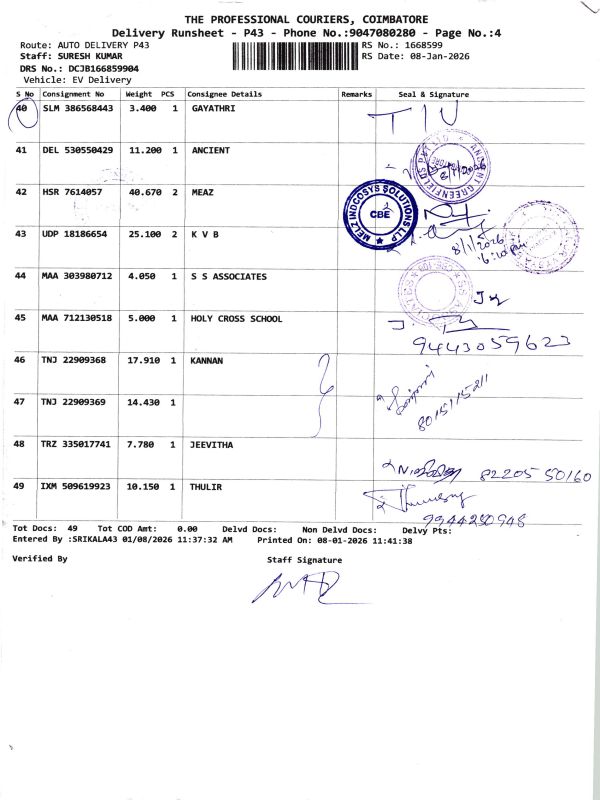 THE PROFESSIONAL COURIERS, COIMBATORE
Delivery Runsheet - P43 - Phone No.:9047080280 - Page No.:4
Route: AUTO DELIVERY P43 RS No.: 1668599
Staff: SURESH KUMAR RS Date: 08-Jan-2026
DRS No.: DCJB166859904
Vehicle: EV Delivery
S No Consignment No Weight PCS Consignee Details Remarks Seal & Signature
40 SLM 386568443 3.400 1 GAYATHRI TIU
41 DEL 530550429 11.200 1 ANCIENT
ANCIENT GREENFIELDS PVT LTD
42 HSR 7614057 40.670 2 MEAZ
MELZ INDCOSYS SOLUTIONS LLP
CBE
43 UDP 18186654 25.100 2 K V B
8/1/2026
44 MAA 303980712 4.050 1 S S ASSOCIATES
45 MAA 712130518 5.000 1 HOLY CROSS SCHOOL
9443059623
46 TNJ 22909368 17.910 1 KANNAN
8015115211
47 TNJ 22909369 14.430 1
48 TRZ 335017741 7.780 1 JEEVITHA
82205 50160
49 IXM 509619923 10.150 1 THULIR
9944230948
Tot Docs: 49 Tot COD Amt: 0.00 Delvd Docs: Non Delvd Docs: Delvy Pts:
Entered By :SRIKALA43 01/08/2026 11:37:32 AM Printed On: 08-01-2026 11:41:38
Verified By Staff Signature